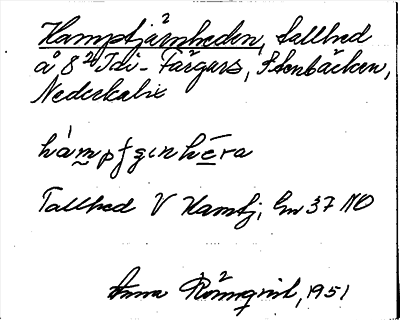 Hamptjärnheden, tallhed
å 8²⁶ Idi-Färgars, Stenbäcken,
Nederkalix
hàmpʃɛɪnhēra
Tallhed V Hamtj, Gm 37 NO
Anna Rönnqvist, 1951